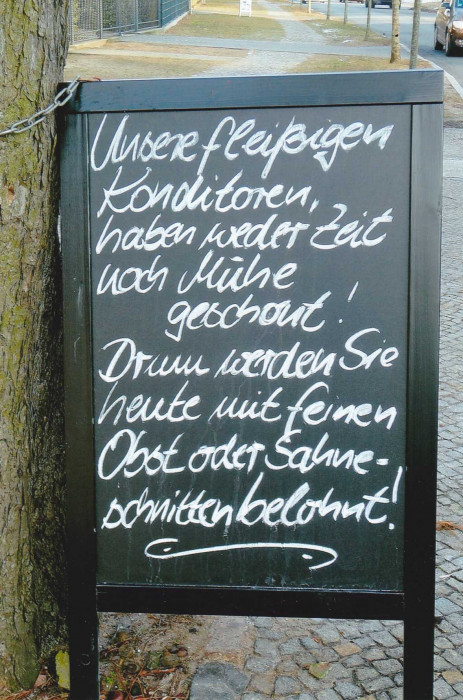 Unsere fleißigen
Konditoren,
haben weder Zeit
noch Mühe
geschont!
Drum werden Sie
heute mit feinen
Obst oder Sahne-
schnitten belohnt!